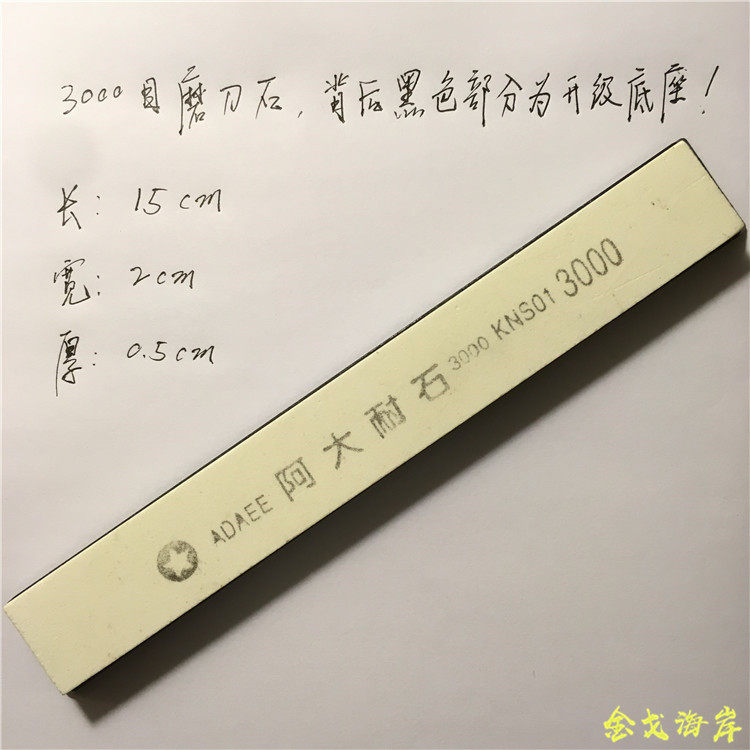 3000目磨刀石，背后黑色部分为升级底座！
长：15cm
宽：2cm
厚：0.5cm
ADAEE 阿大耐石 3000 KNS01 3000
金戈海岸